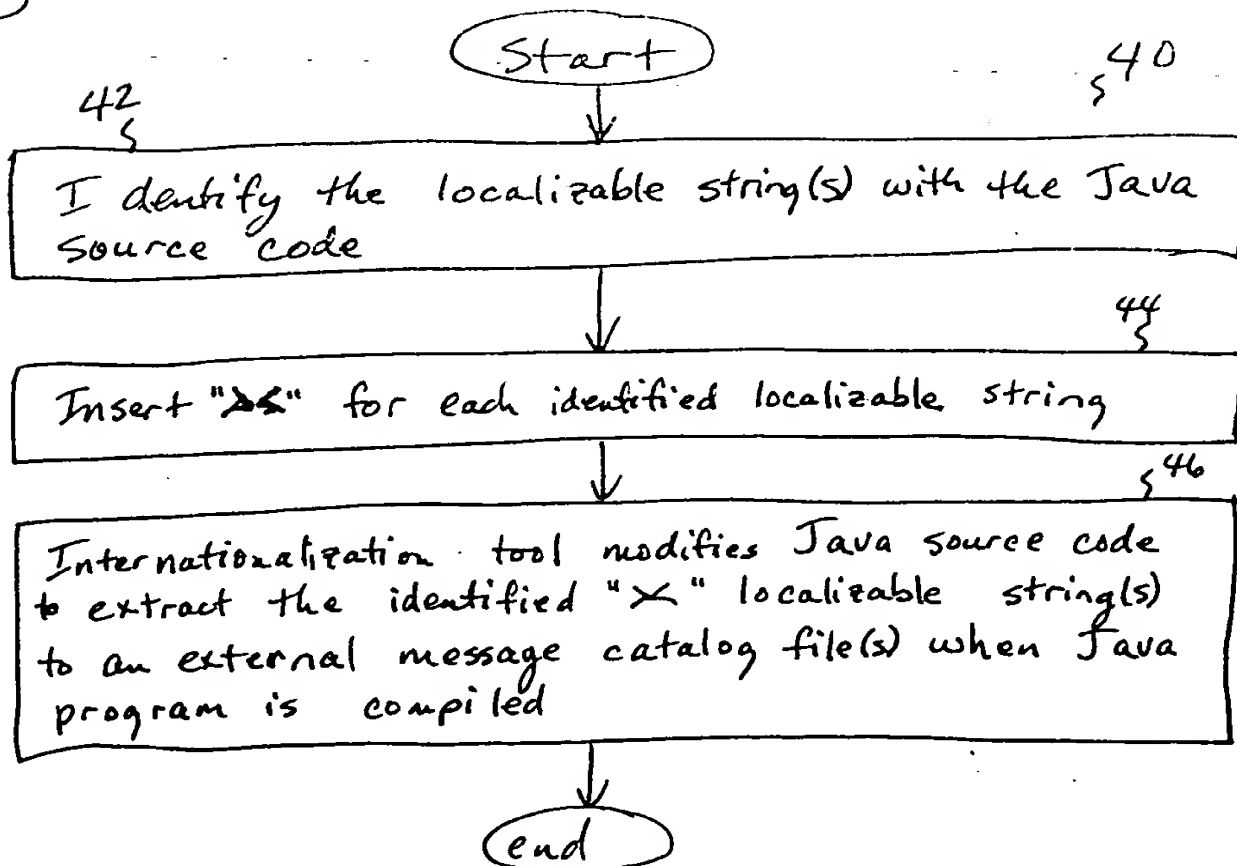 Start
40
42
Identify the localizable string(s) with the Java
source code
44
Insert "><" for each identified localizable string
46
Internationalization tool modifies Java source code
to extract the identified "><" localizable string(s)
to an external message catalog file(s) when Java
program is compiled
end